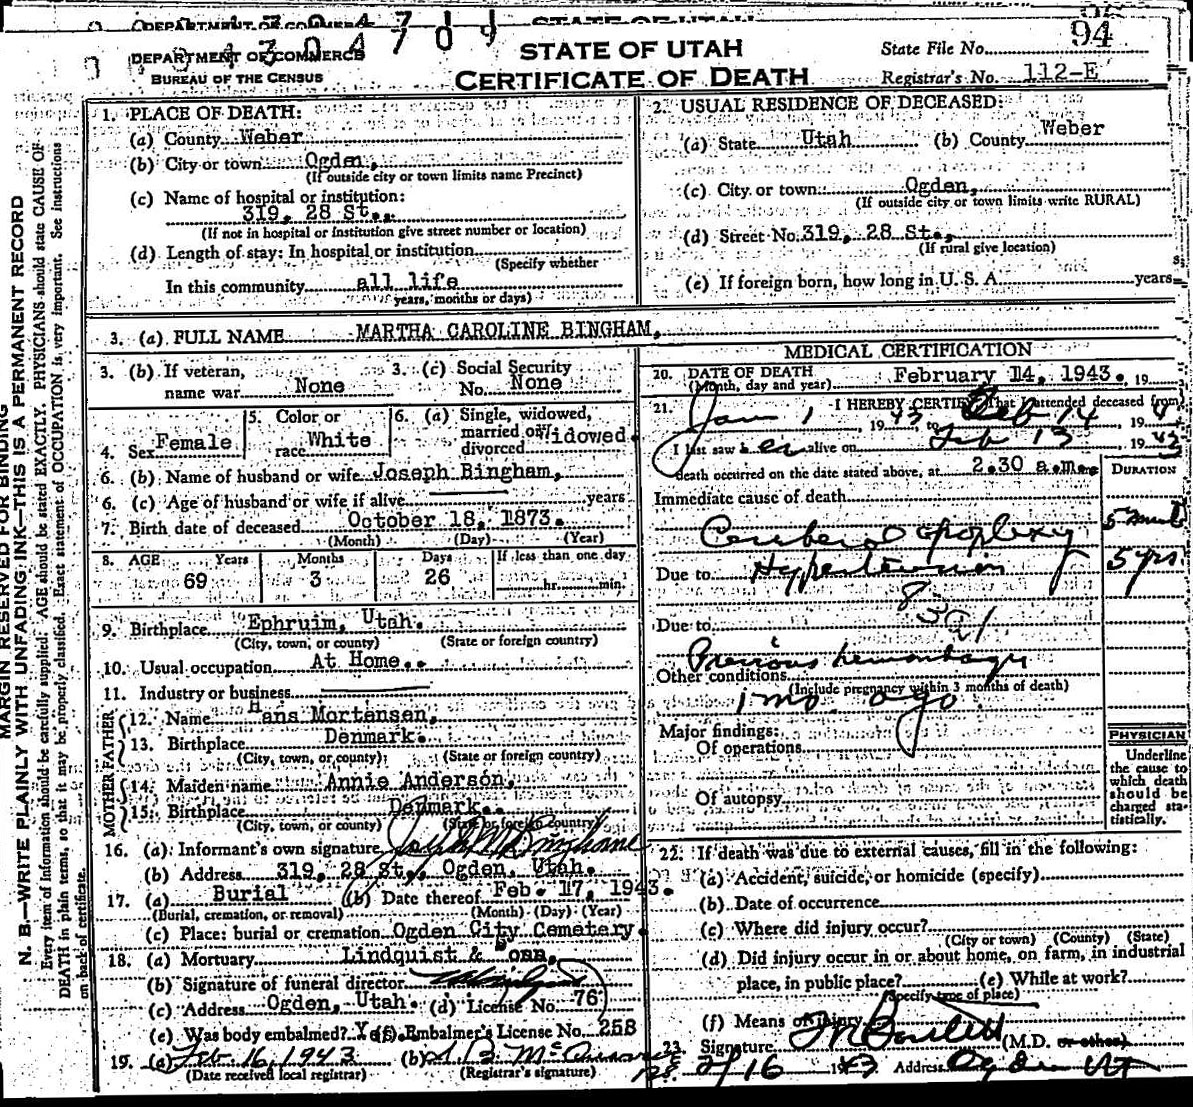 DEPARTMENT OF COMMERCE
BUREAU OF THE CENSUS
STATE OF UTAH
CERTIFICATE OF DEATH
State File No. 94
Registrar's No. 112-E
MARGIN RESERVED FOR BINDING
N. B.—WRITE PLAINLY WITH UNFADING INK—THIS IS A PERMANENT RECORD
Every item of information should be carefully supplied. AGE should be stated EXACTLY. PHYSICIANS should state CAUSE OF
DEATH in plain terms, so that it may be properly classified. Exact statement of OCCUPATION is very important. See instructions
on back of certificate.
1. PLACE OF DEATH:
(a) County Weber
(b) City or town Ogden,
(If outside city or town limits name Precinct)
(c) Name of hospital or institution:
319, 28 St.,
(If not in hospital or institution give street number or location)
(d) Length of stay: In hospital or institution
(Specify whether
In this community all life
years, months or days)
2. USUAL RESIDENCE OF DECEASED:
(a) State Utah (b) County Weber
(c) City or town: Ogden,
(If outside city or town limits write RURAL)
(d) Street No. 319, 28 St.,
(If rural give location)
(e) If foreign born, how long in U. S. A. years
3. (a) FULL NAME MARTHA CAROLINE BINGHAM,
3. (b) If veteran, name war None
3. (c) Social Security No. None
4. Sex Female
5. Color or race White
6. (a) Single, widowed, married or divorced Widowed.
6. (b) Name of husband or wife Joseph Bingham,
6. (c) Age of husband or wife if alive years
7. Birth date of deceased October 18, 1873.
(Month) (Day) (Year)
8. AGE Years Months Days If less than one day
69 3 26 hr. min.
9. Birthplace Ephruim, Utah.
(City, town, or county) (State or foreign country)
10. Usual occupation At Home..
11. Industry or business
FATHER
12. Name Hans Mortensen,
13. Birthplace Denmark.
(City, town, or county) (State or foreign country)
MOTHER
14. Maiden name Annie Anderson,
15. Birthplace Denmark..
(City, town, or county) (State or foreign country)
16. (a) Informant's own signature Joseph M Bingham
(b) Address 319, 28 St., Ogden, Utah.
17. (a) Burial (b) Date thereof Feb. 17, 1943.
(Burial, cremation, or removal) (Month) (Day) (Year)
(c) Place: burial or cremation Ogden City Cemetery.
18. (a) Mortuary Lindquist & Sons,
(b) Signature of funeral director
(c) Address Ogden, Utah. (d) License No. 76
(e) Was body embalmed? Yes (f) Embalmer's License No. 258
19. (a) Feb 16, 1943 (b)
(Date received local registrar) (Registrar's signature)
MEDICAL CERTIFICATION
20. DATE OF DEATH
(Month, day and year) February 14, 1943., 19
21. I HEREBY CERTIFY That I attended deceased from
Jan 1, 1943 to Feb 14, 194
I last saw her alive on Feb 13 1943
death occurred on the date stated above, at 2.30 a.m.
DURATION
Immediate cause of death
Cerebral apoplexy 5 min
Due to Hypertension 5 yrs
Due to
83a1
Previous hemorrhage
Other conditions
(Include pregnancy within 3 months of death)
1 mo. ago
Major findings:
Of operations
Of autopsy
PHYSICIAN
Underline
the cause to
which death
should be
charged sta-
tistically.
22. If death was due to external causes, fill in the following:
(a) Accident, suicide, or homicide (specify)
(b) Date of occurrence
(c) Where did injury occur?
(City or town) (County) (State)
(d) Did injury occur in or about home, on farm, in industrial
place, in public place? (e) While at work?
(Specify type of place)
(f) Means of injury
23. Signature (M.D. or other)
2/16 1943 Address Ogden Ut